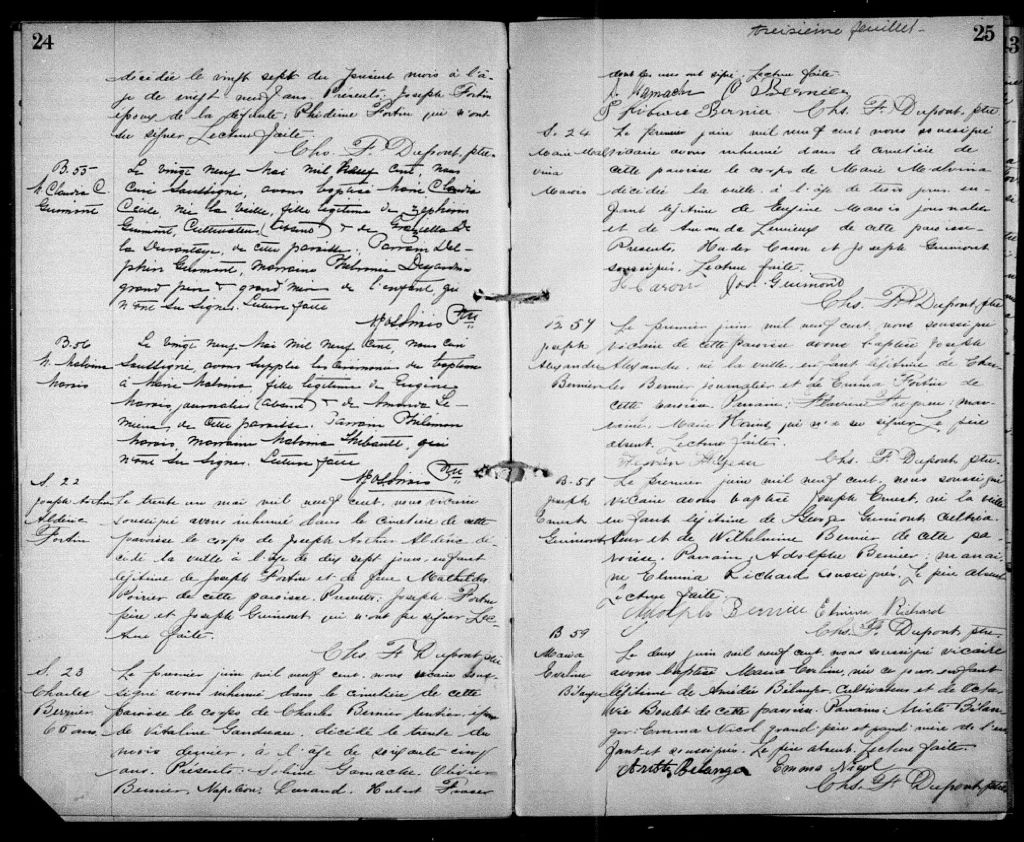 24
décédée le vingt sept du présent mois à l'â-
ge de vingt neuf ans. Présents: Joseph Fortin
époux de la défunte; Phidime Fortin qui n'ont
su signer Lecture faite.
Chs. F. Dupont, ptre.
B. 55
M. Claudia C.
Guimont
Le vingt neuf Mai mil neuf cent, nous
Curé soussigné, avons baptisé Marie Claudia
Cécile, née la veille, fille légitime de Zéphirin
Guimont, Cultivateur (absent) & de Graziella De
la Durantaye, de cette paroisse. Parrain Del-
phin Guimont, marraine Philomène Desjardins
grand père & grand mère de l'enfant qui
n'ont su signer. Lecture faite
Ptre
B. 56
M. Malvina
Marois
Le vingt neuf Mai mil neuf cent, nous curé
soussigné, avons suppléé les cérémonies du baptême
à Marie Malvina, fille légitime de Eugène
Marois, journalier (absent) & de Amanda Le-
mieux, de cette paroisse. Parrain Philémon
Marois, marraine Malvina Thibault, qui
n'ont su signer. Lecture faite
Ptre
S. 22
Joseph Arthur
Aldéric
Fortin
Le trente un mai mil neuf cent, nous vicaire
soussigné avons inhumé dans le cimetière de cette
paroisse le corps de Joseph Arthur Aldéric dé-
cédé la veille à l'âge de dix sept jours, enfant
légitime de Joseph Fortin et de feue Mathilda
Poirier de cette paroisse. Présents: Joseph Fortin
père et Joseph Guimont qui n'ont pu signer Lec-
ture faite.
Chs. F. Dupont, ptre
S. 23
Charles
Bernier
65 ans
Le premier juin mil neuf cent, nous vicaire sous-
signé avons inhumé dans le cimetière de cette
paroisse le corps de Charles Bernier rentier, époux
de Vitaline Gaudreau, décédé le trente du
mois dernier, à l'âge de soixante cinq
ans. Présents: Gamache, Olivier
Bernier, Napoléon Hubert Fraser
25
treizième feuillet
dont les uns ont signé. Lecture faite.
Gamache O Bernier
Bernier. Chs. F. Dupont, ptre
S. 24
Marie Mal-
vina
Marois
Le premier juin mil neuf cent nous soussigné
vicaire avons inhumé dans le cimetière de
cette paroisse le corps de Marie Malvina
décédée la veille à l'âge de trois jours en-
fant légitime de Eugène Marois journalier
et de Amanda Lemieux de cette paroisse
Présents Caron et Joseph Guimont
soussignés. Lecture faite.
Caron Jos. Guimond
Chs. F. Dupont, ptre
B 57
Joseph
Alexandre
Bernier
Le premier juin mil neuf cent, nous soussigné
vicaire de cette paroisse avons baptisé Joseph
Alexandre, né la veille, enfant légitime de Char-
les Bernier journalier et de Emma Fortin de
cette paroisse. Parrain: mar-
raine: Marie qui n'a su signer. Le père
absent. Lecture faite.
Chs. F. Dupont, ptre.
B. 58
Joseph
Ernest
Guimont
Le premier juin mil neuf cent, nous soussigné
vicaire avons baptisé Joseph Ernest, né la veille
enfant légitime de Georges Guimont cultiva-
teur et de Wilhelmine Bernier de cette pa-
roisse. Parrain, Adolphe Bernier; marrai-
ne Elmina Richard soussignés. Le père absent
Lecture faite.
Adolphe Bernier Elmina Richard
Chs. F. Dupont, ptre.
B 59
Maria
Évéline
Bélanger
Le deux juin mil neuf cent, nous soussigné vicaire
avons baptisé Maria Éveline, née ce jour, enfant
légitime de Amédée Bélanger, Cultivateur et de Octa-
vie Boulet de cette paroisse. Parrains: Bélan-
ger: Emma Nicol grand père et grand mère de l'en-
fant et soussignés. Le père absent. Lecture faite
Bélanger Emma Nicol
Chs. F. Dupont, ptre